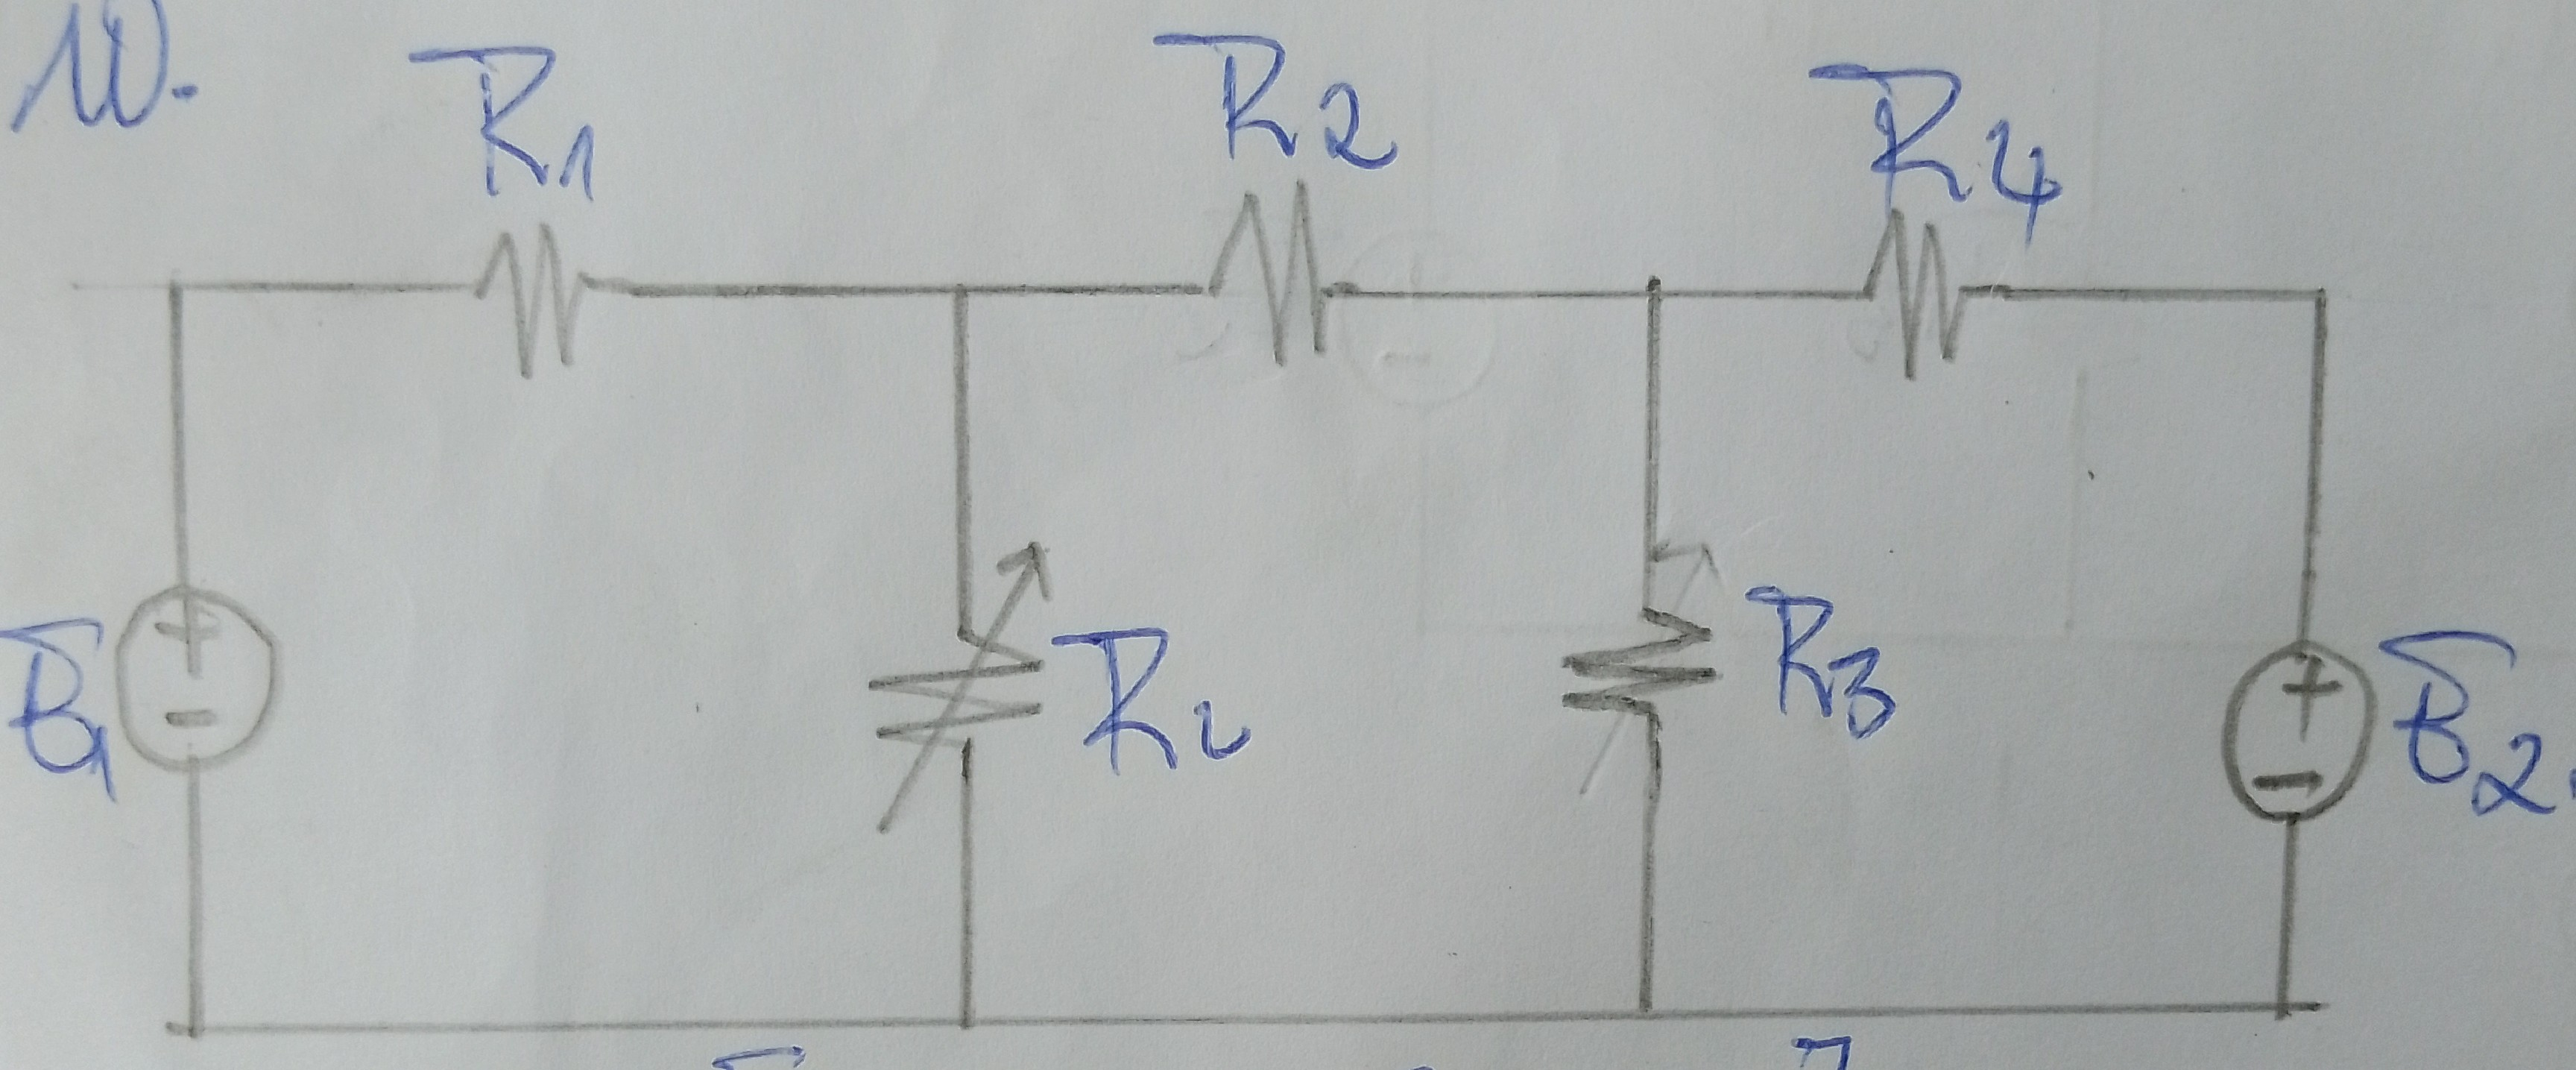 10.
R1
R2
R4
E1
+
-
RL
R3
+
-
E2